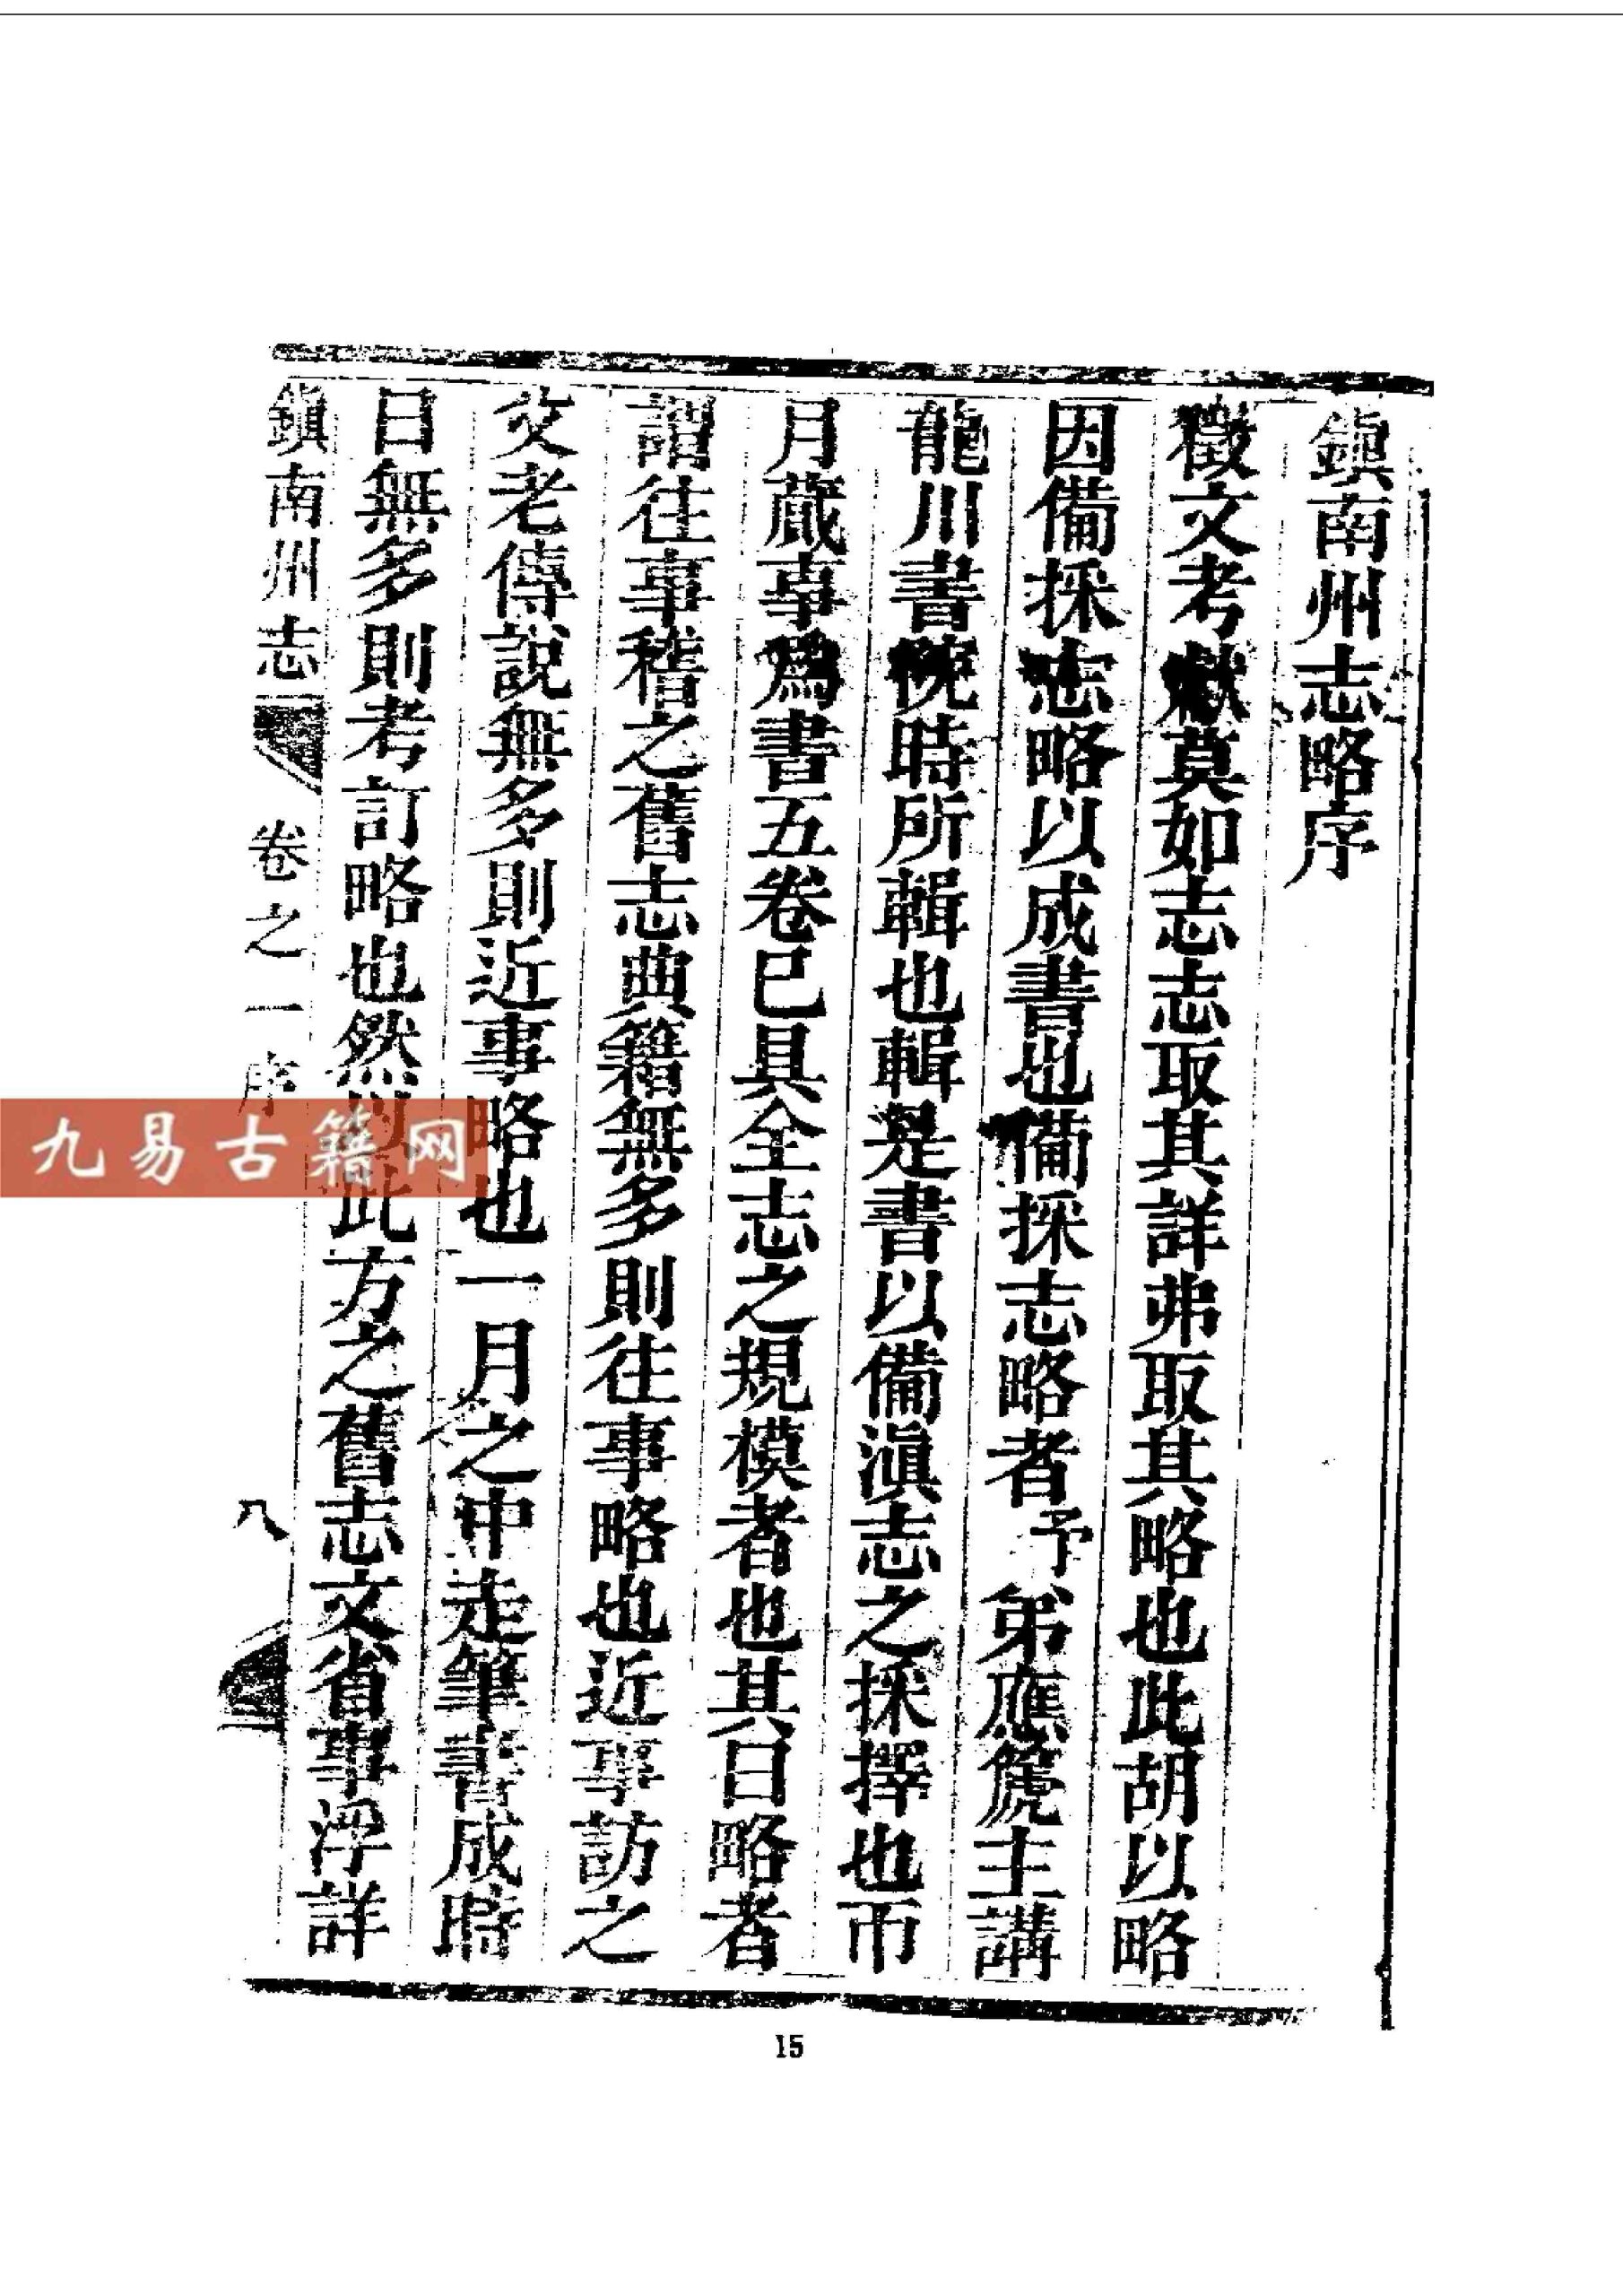 鎮南州志略序
徵文考獻莫如志志取其詳弗取其略也此胡以略
因備採志略以成書也備採志略者予弟應篪主講
龍川書院時所輯也輯是書以備滇志之採擇也帀
月蕆事爲書五卷已具全志之規模者也其曰略者
謂往事稽之舊志典籍無多則往事略也近事訪之
父老傳說無多則近事略也一月之中走筆書成時
日無多則考訂略也然以此方之舊志文省事浮詳
鎮南州志 卷之一 序 八
九易古籍网
15